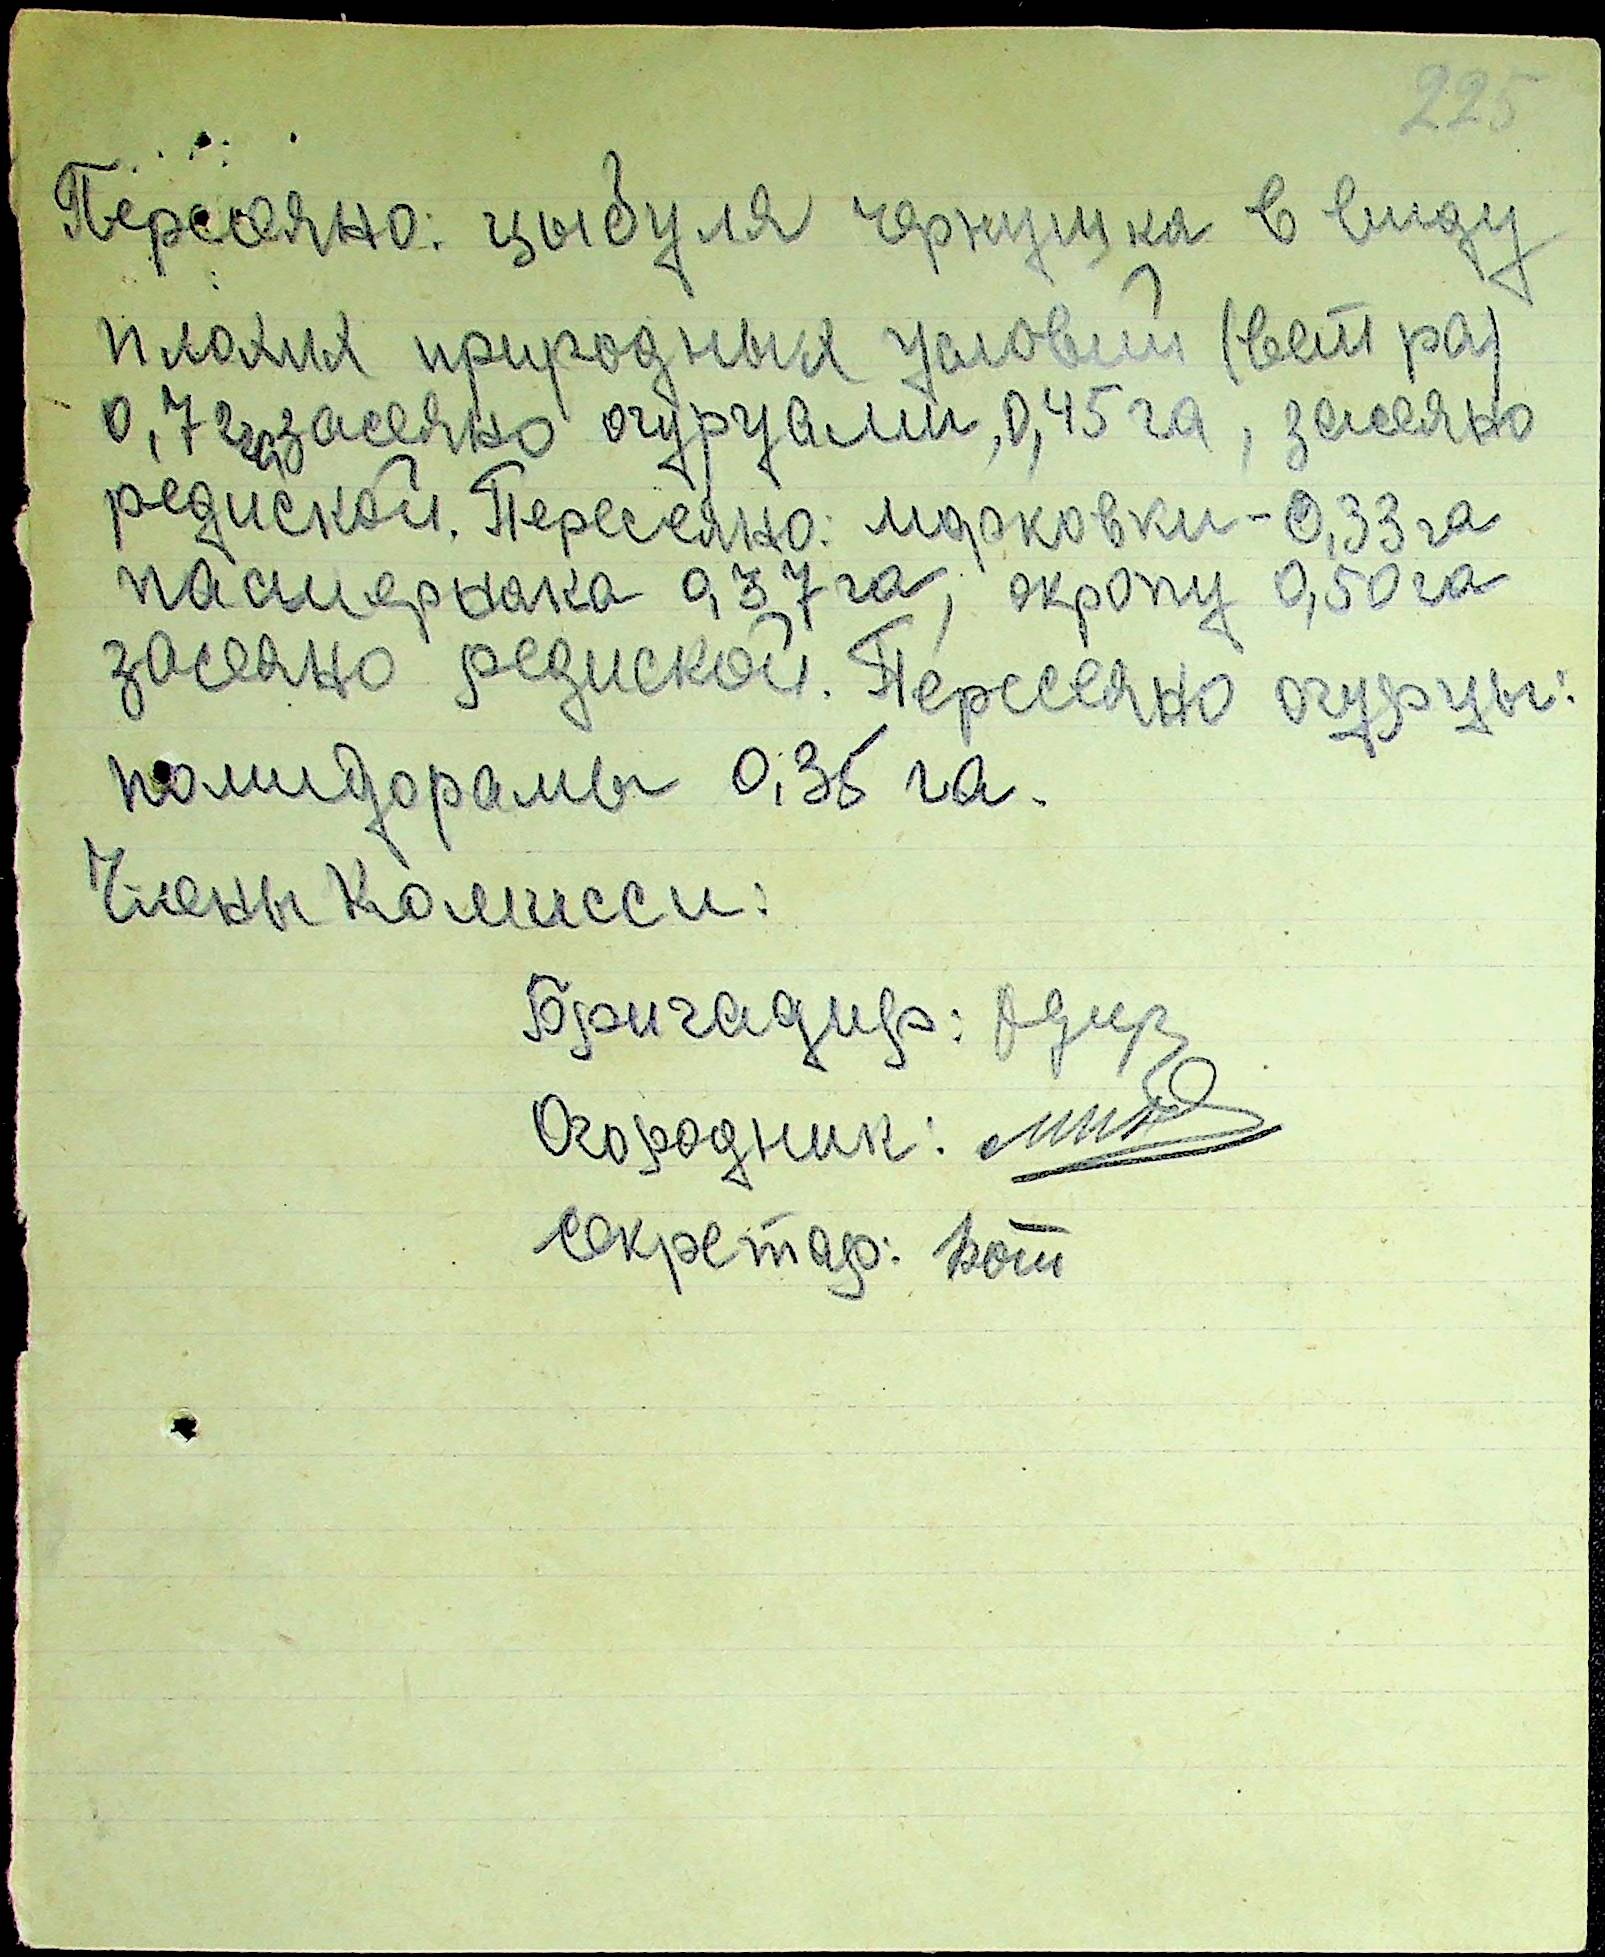 225
Пересеяно: цыбуля чернушка в виду
плохих природных условий (ветра)
0,7 га, засеяно огурцами, 0,45 га, засеяно
редиской. Пересеяно: морковки - 0,33 га
пастернака 0,37 га, окропу 0,50 га
засеяно редиской. Пересеяно огурцы:
помидорамы 0,35 га.
Члены Комисси:
Бригадир:
Огородник:
Секретар: Кот